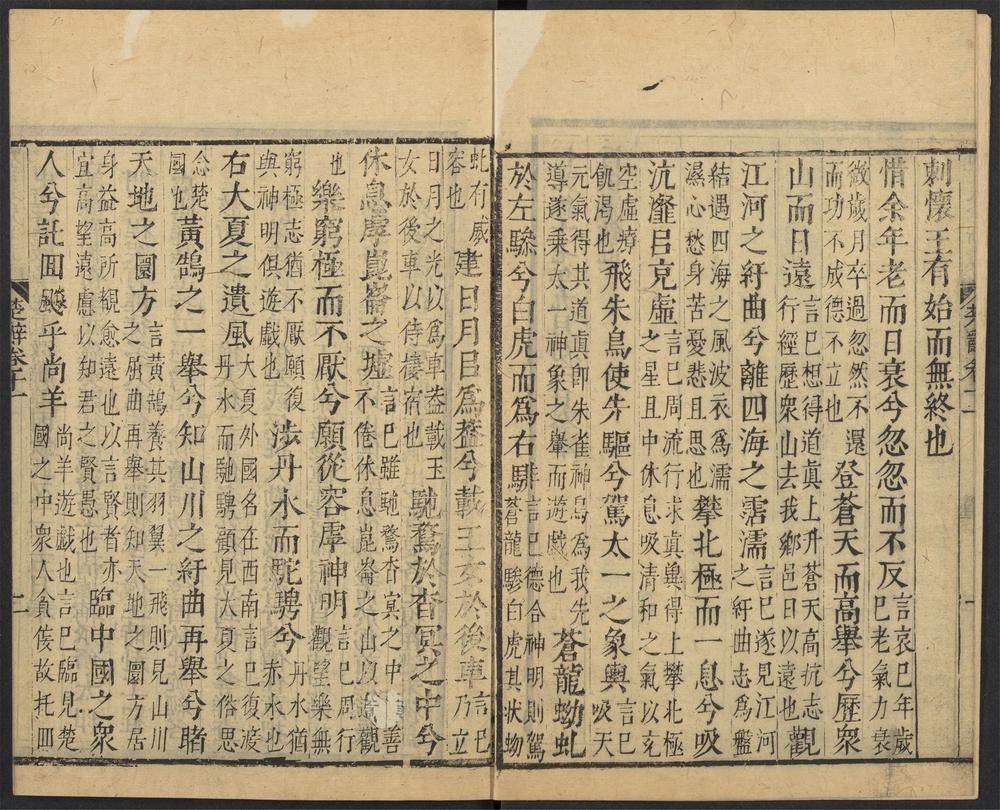 刺懷王有始而無終也
惜余年老而日衰兮忽忽而不反言哀巳年歲
巳老氣力衰
微歲月卒過忽然不還
而功不成德不立也登蒼天而高舉兮歷衆
山而日遠言巳想得道真上升蒼天高抗志
行經歷衆山去我鄉邑日以遠也觀
江河之紆曲兮離四海之霑濡言巳遂見江河
之紆曲志爲盤
結遇四海之風波衣爲濡
濕心愁身苦憂悲且思也攀北極而一息兮吸
沆瀣㠯充虛言巳周流行求真兾得上攀北極
之星且中休息吸清和之氣以充
空虛療
飢渴也飛朱鳥使先驅兮駕太一之象輿言巳
吸天
元氣得其道真即朱雀神鳥爲我先
導遂乘太一神象之轝而遊戲也蒼龍蚴虬
於左驂兮白虎而爲右騑言巳德合神明則駕
蒼龍驂白虎其狀蚴
虬有威
容也建日月㠯爲蓋兮載玉女於後車言巳
乃立
日月之光以爲車蓋載玉
女於後車以侍棲宿也馳騖於杳冥之中兮
休息虖崑崙之墟言巳雖馳騖杳冥之中善
不倦休息崑崙之山以遊觀
也樂窮極而不厭兮願從容虖神明言巳周行
觀望樂無
窮極志猶不厭願復
與神明俱遊戲也涉丹水而駝騁兮丹水猶
赤水也
右大夏之遺風大夏外國名在西南言巳復渡
丹水而馳騁顧見大夏之俗思
念楚
國也黃鵠之一舉兮知山川之紆曲再舉兮睹
天地之圜方言黃鵠養其羽翼一飛則見山川
之屈曲再舉則知天地之圜方居
身益高所覩愈遠也以言賢者亦
宜高望遠慮以知君之賢愚也臨中國之衆
人兮託囬飈乎尚羊尚羊遊戲也言巳臨見楚
國之中衆人貪佞故托囬